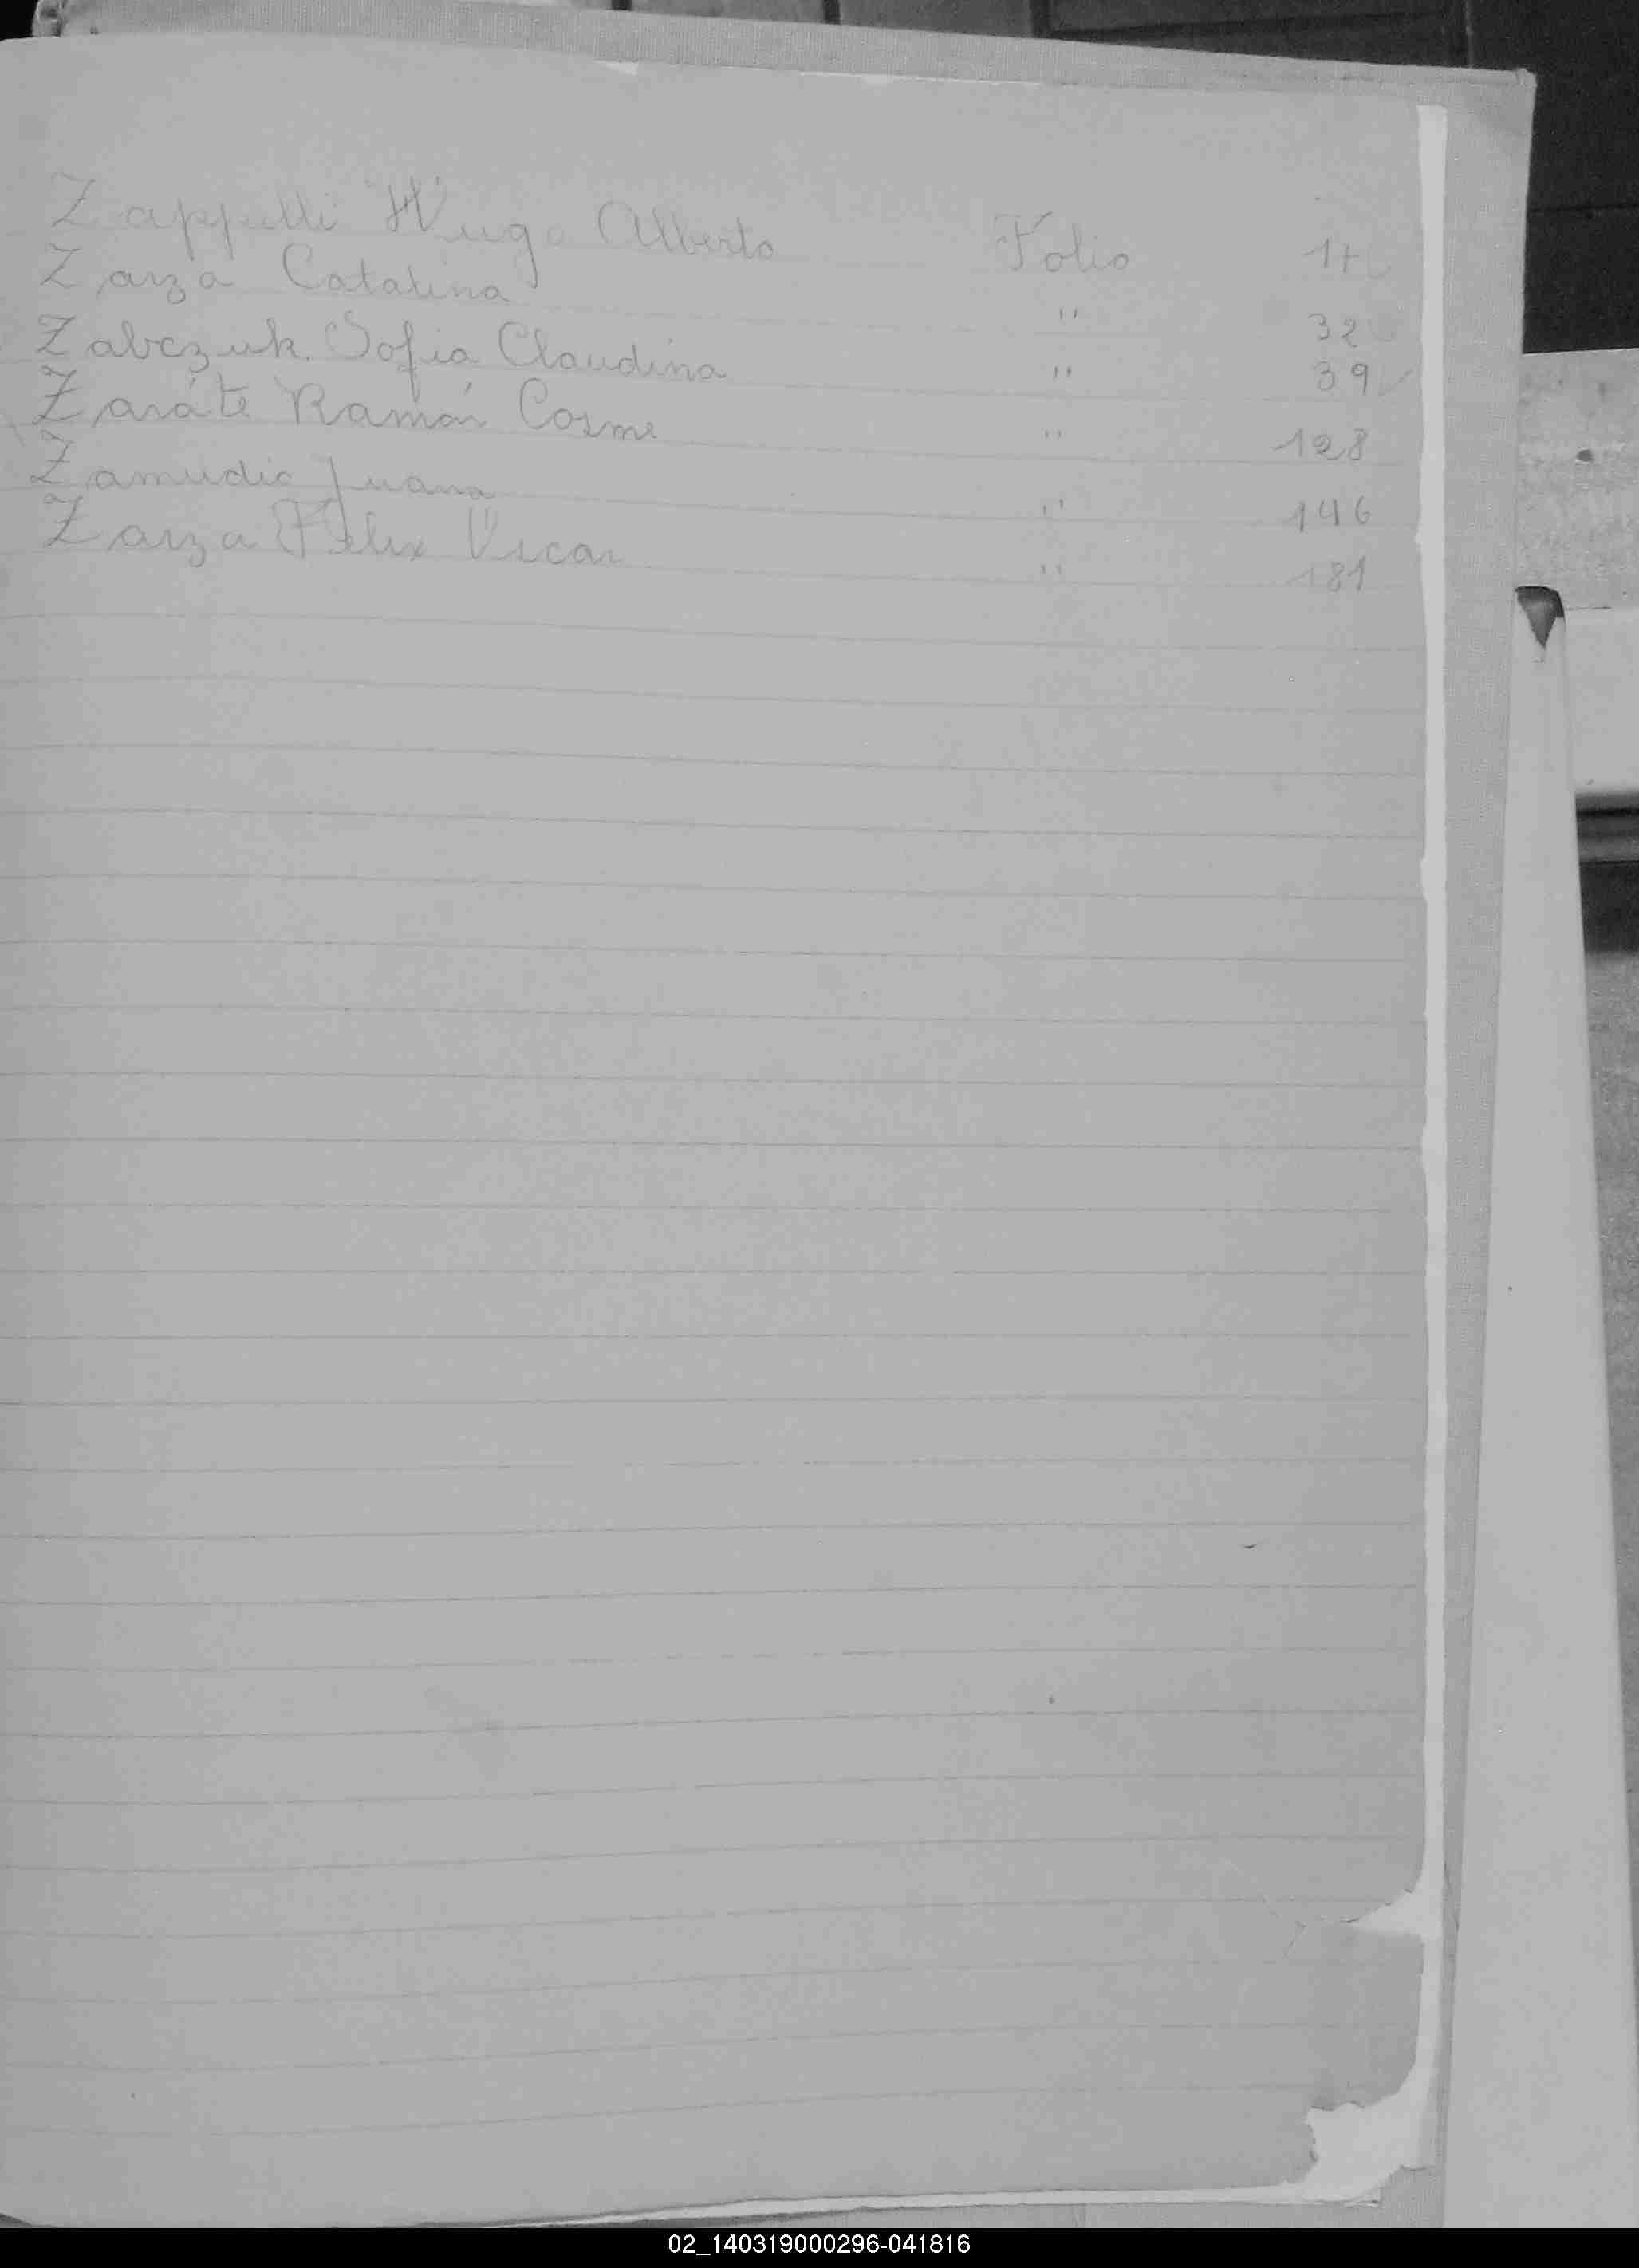 Zappelli Hugo Alberto Folio 17
Zarza Catalina " 32
Zabczuk Sofia Claudina " 39
Zaráte Ramón Cosme " 128
Zamudio Juana " 146
Zarza Félix Vicar " 181
02_140319000296-041816